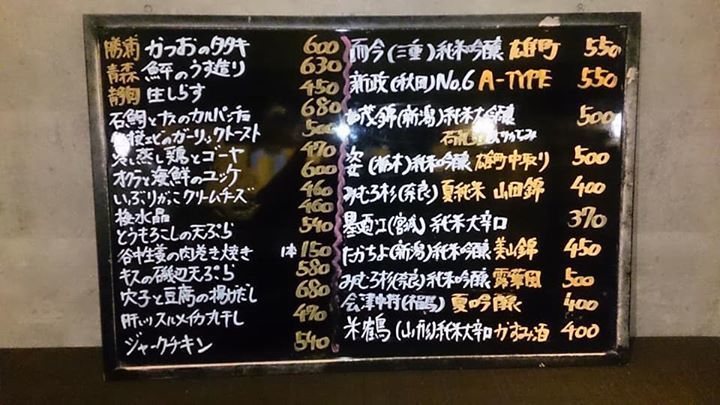 勝浦 かつおのタタキ 600
青森 鮃のうす造り 630
静岡 生しらす 450
石鯛と茄のカルパッチョ 680
桜えびのガーリックトースト 500
冷し蒸し鶏とゴーヤ 470
オクラと海鮮のユッケ 600
いぶりがっこクリームチーズ 460
極水晶 460
とうもろこしの天ぷら 540
谷中生姜の肉巻き焼き 1本 150
キスの磯辺天ぷら 580
穴子と豆腐の揚げだし 680
肝いりスルメイカ丸干し 470
ジャークチキン 540
而今(三重)純米吟醸 雄町 550
新政(秋田)No.6 A-TYPE 550
加茂錦(新潟)純米大吟醸 500
姿(栃木)純米吟醸 雄町中取り 500
みむろ杉(奈良)夏純米 山田錦 400
墨廼江(宮城)純米大辛口 370
たかちよ(新潟)純米吟醸 美山錦 450
みむろ杉(奈良)純米吟醸 露葉風 500
会津中将(福島)夏吟醸 400
米鶴(山形)純米大辛口 かすみ酒 400